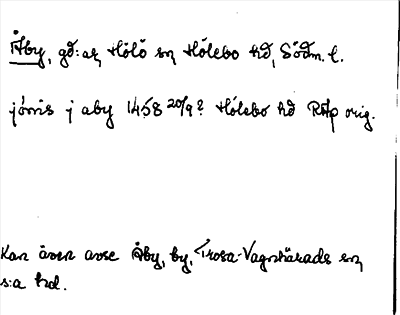 Åby, gd:ar, Hölö sn, Hölebo hd, Södm. l.
jönis j aby 1458 20/9? Hölebo hd RAp orig.
Kan även avse Åby, by, Trosa-Vagnhärads sn,
s:a hd.